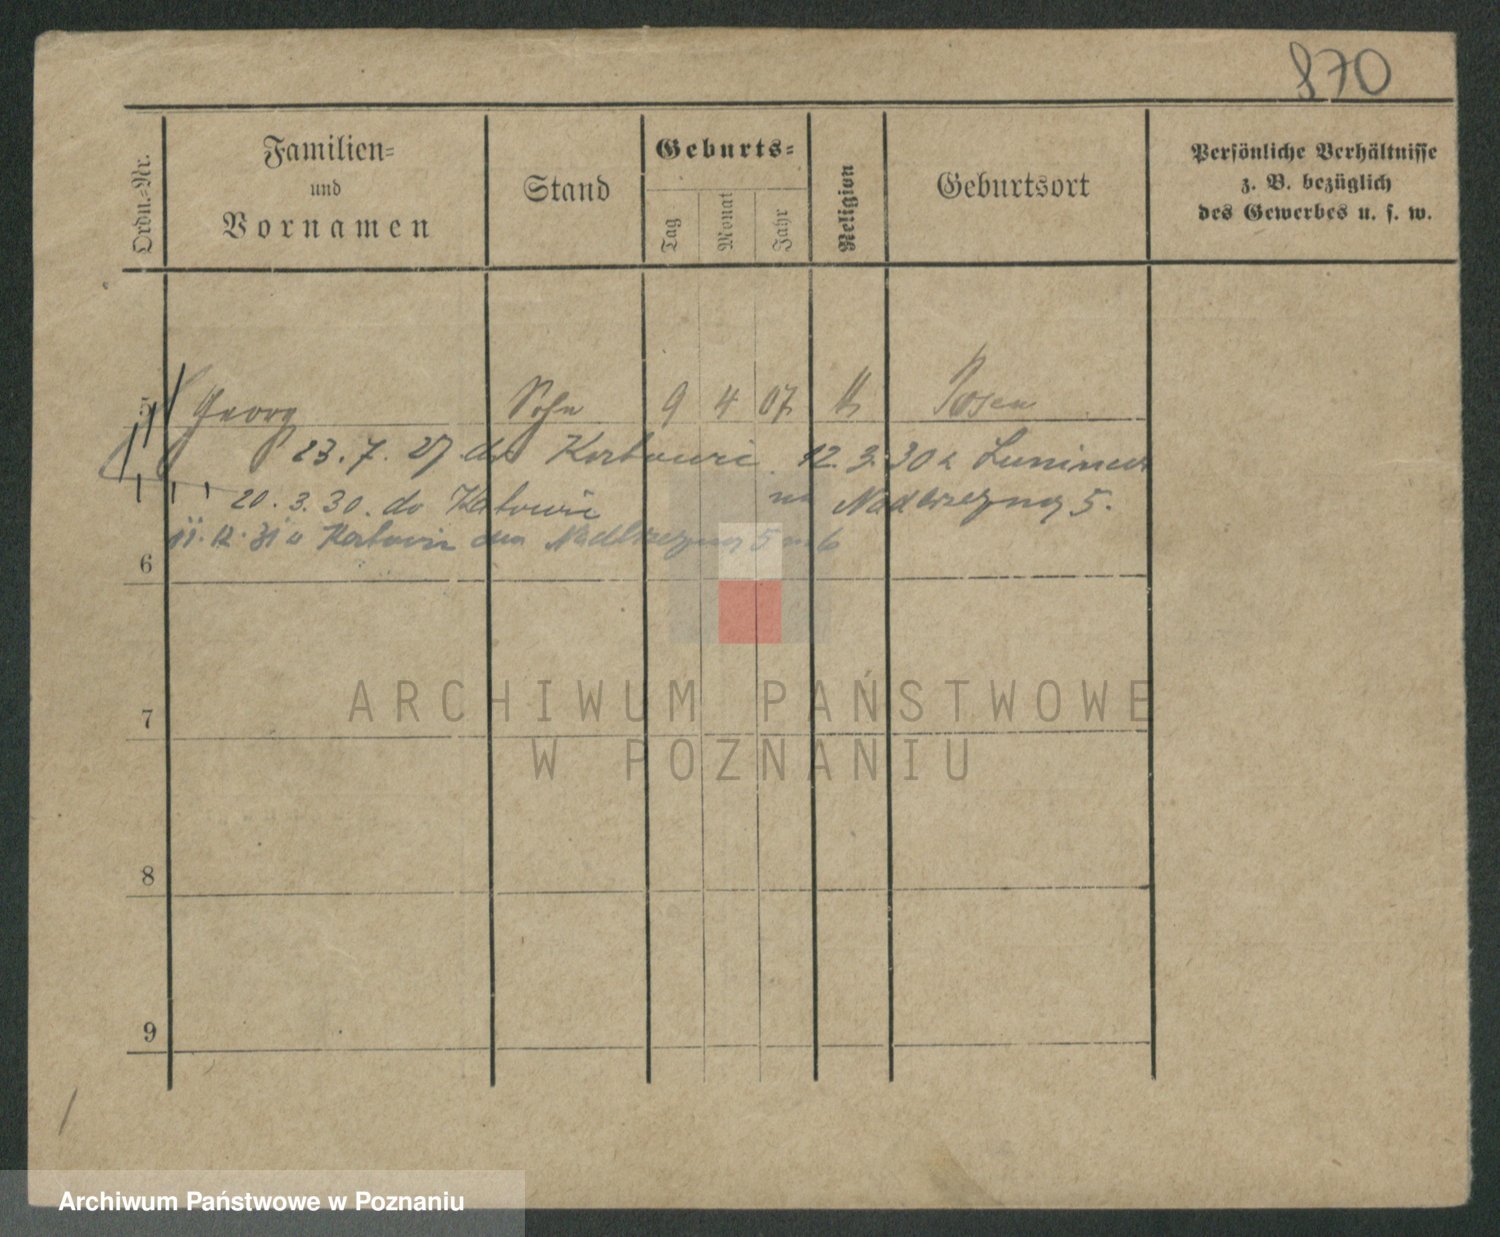 870
Ordn.-Nr.
Familien-
und
Vornamen
Stand
Geburts-
Tag
Monat
Jahr
Religion
Geburtsort
Persönliche Verhältnisse
z. B. bezüglich
des Gewerbes u. s. w.
5 Georg Sohn 9 4 07 Posen
23.7.27 do Katowic 12.3.30 z
20.3.30. do Katowic na Nadbrzeżną 5.
11.12.31 z Katowic Nadbrzeżną 5 m 6
6
7
8
9
ARCHIWUM PAŃSTWOWE
W POZNANIU
Archiwum Państwowe w Poznaniu